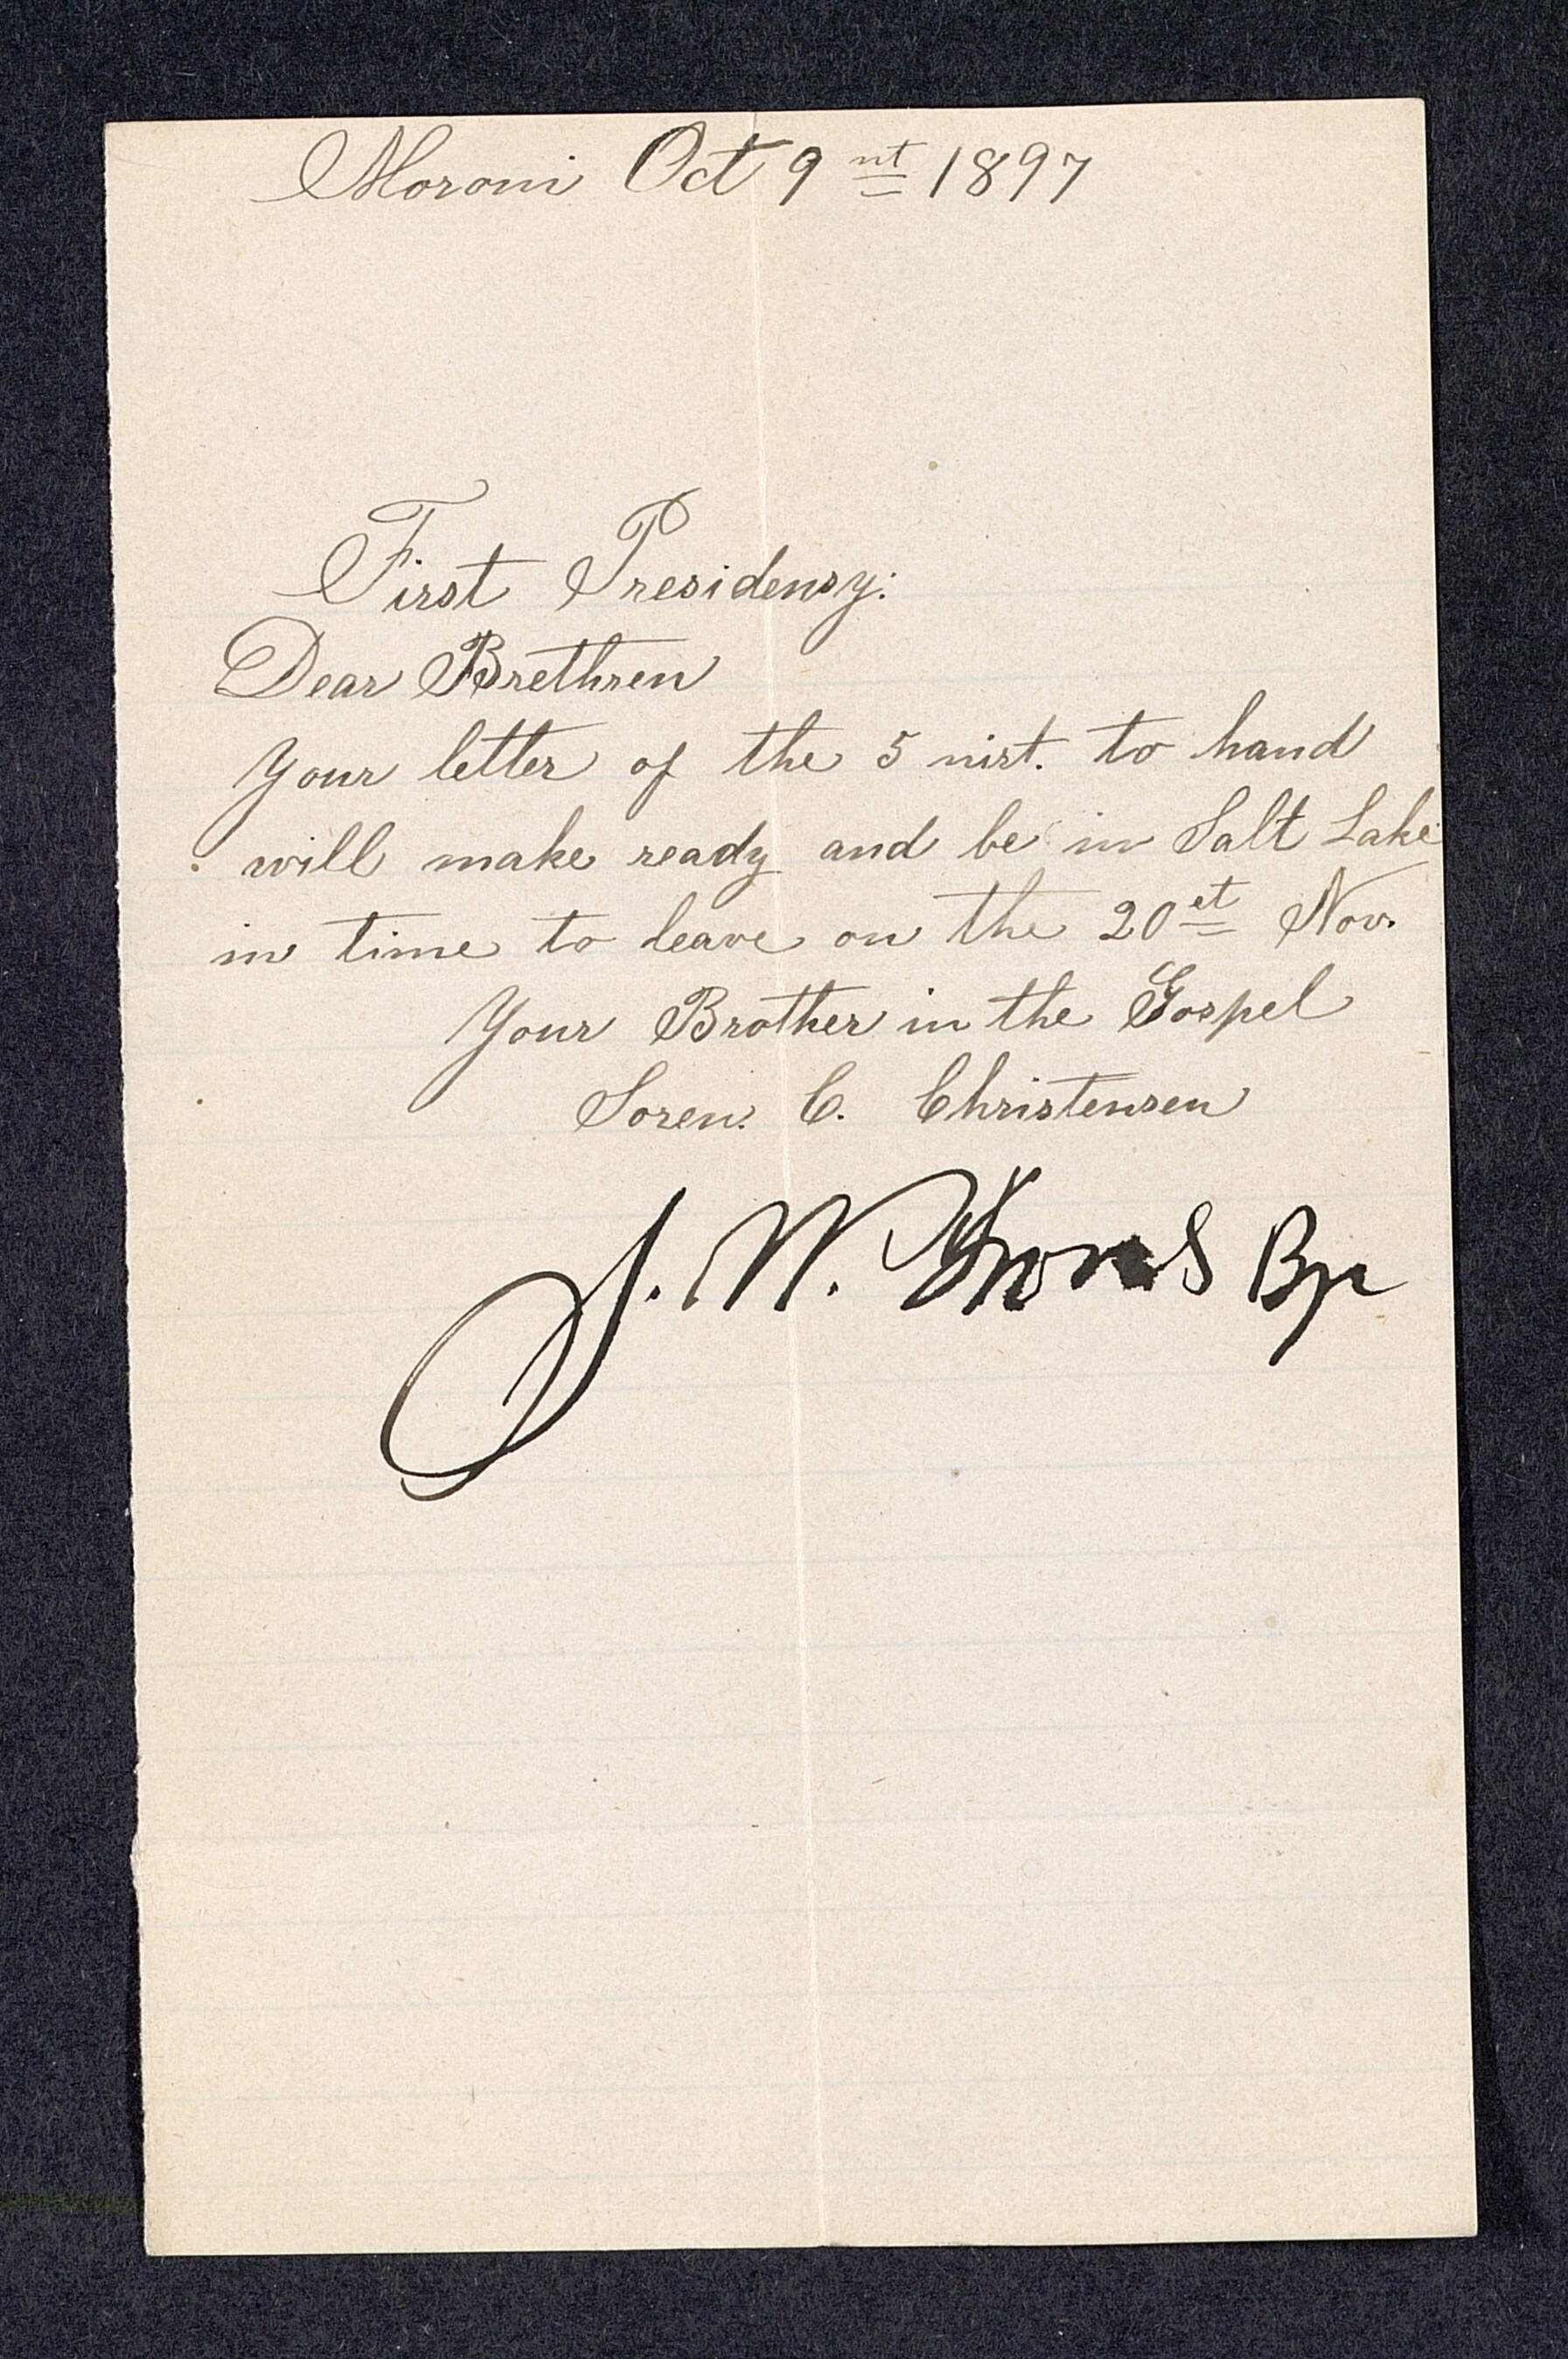 Moroni Oct 9 nt 1897
First Presidency:
Dear Brethren
Your letter of the 5 inst. to hand
will make ready and be in Salt Lake
in time to leave on the 20 et Nov.
Your Brother in the Gospel
Soren. C. Christensen
J. W. Irons Bp